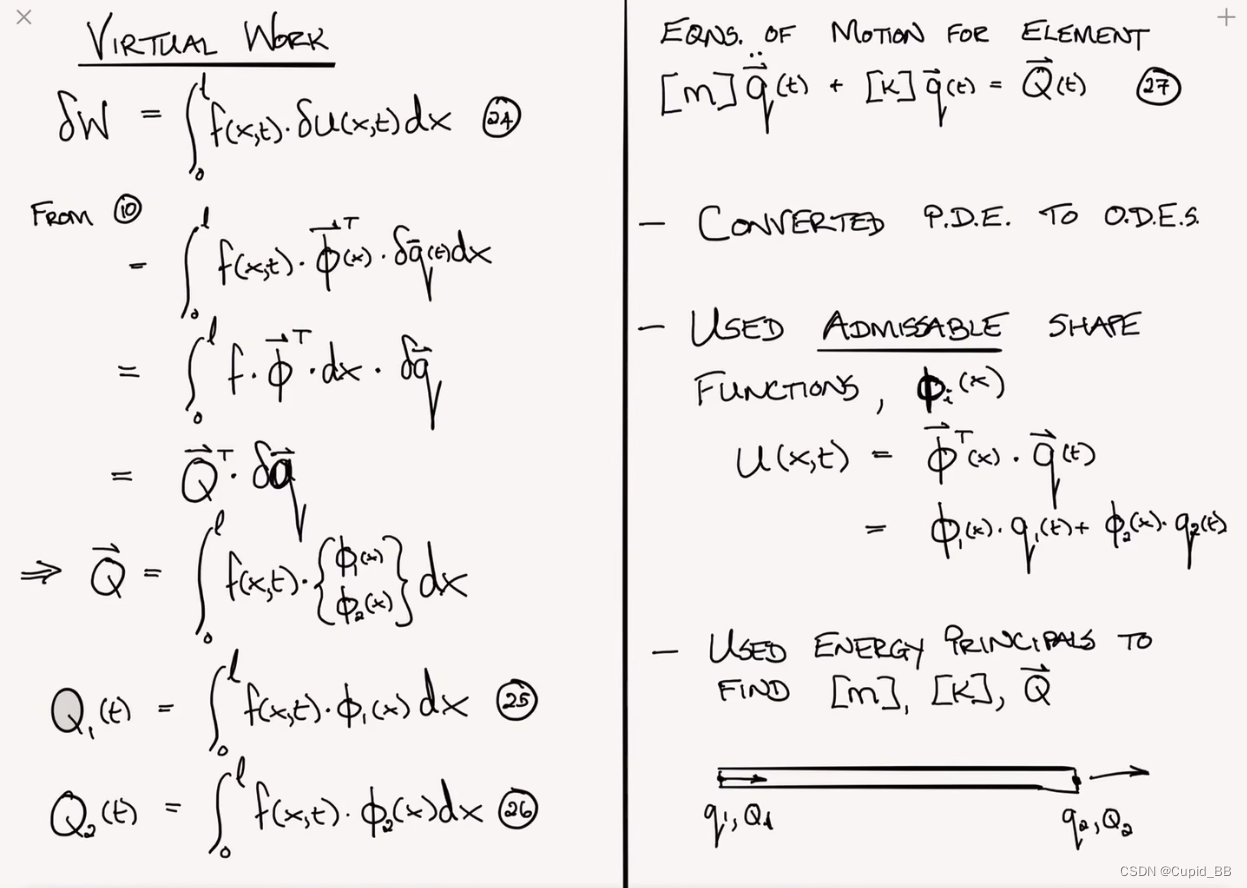 VIRTUAL WORK
δW = ∫₀ˡ f(x,t)·δu(x,t)dx ㉔
FROM ⑩
= ∫₀ˡ f(x,t)·ϕ⃗ᵀ(x)·δq⃗(t)dx
= ∫₀ˡ f·ϕ⃗ᵀ·dx·δq⃗
= Q⃗ᵀ·δq⃗
⇒ Q⃗ = ∫₀ˡ f(x,t)·{ϕ₁(x) ϕ₂(x)} dx
Q₁(t) = ∫₀ˡ f(x,t)·ϕ₁(x)dx ㉕
Q₂(t) = ∫₀ˡ f(x,t)·ϕ₂(x)dx ㉖
EQNS. OF MOTION FOR ELEMENT
[m]q⃗̈(t) + [k]q⃗(t) = Q⃗(t) ㉗
– CONVERTED P.D.E. TO O.D.E.S.
– USED ADMISSABLE SHAPE
FUNCTIONS, ϕᵢ(x)
u(x,t) = ϕ⃗ᵀ(x)·q⃗(t)
= ϕ₁(x)·q₁(t)+ ϕ₂(x)·q₂(t)
– USED ENERGY PRINCIPALS TO
FIND [m], [k], Q⃗
q₁,Q₁ q₂,Q₂
CSDN @Cupid_BB